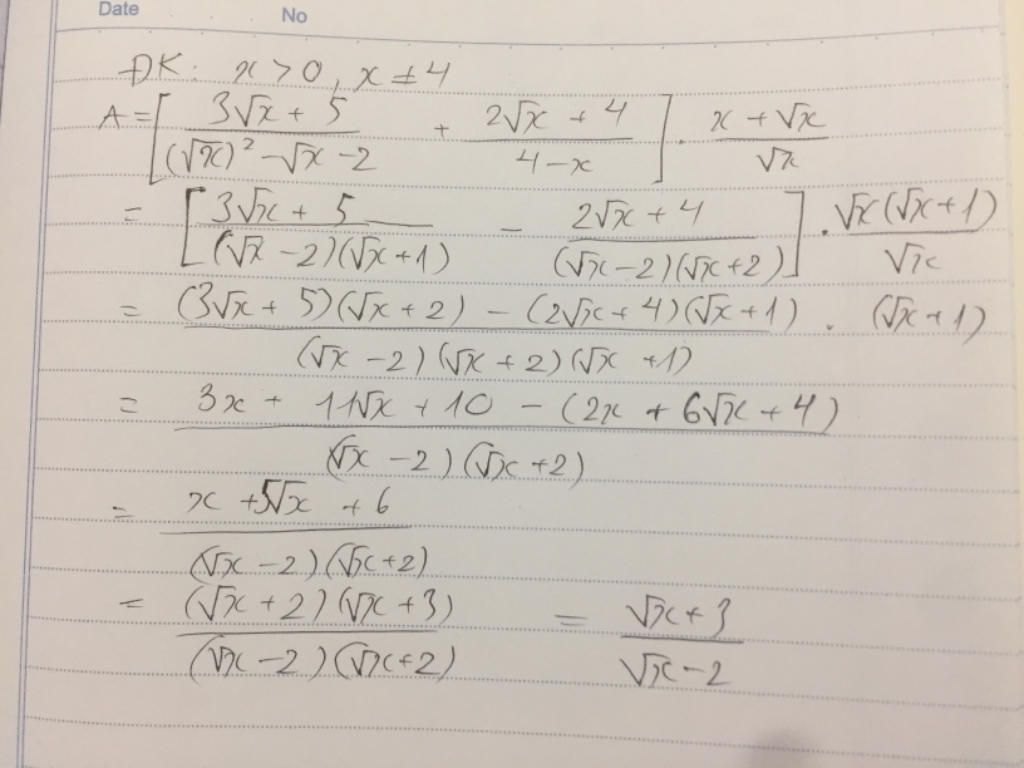 Date No
ĐK: x > 0, x ≠ 4
A = [ (3√x + 5)/((√x)² - √x - 2) + (2√x + 4)/(4 - x) ] . (x + √x)/√x
= [ (3√x + 5)/((√x - 2)(√x + 1)) - (2√x + 4)/((√x - 2)(√x + 2)) ] . √x(√x + 1)/√x
= ((3√x + 5)(√x + 2) - (2√x + 4)(√x + 1))/((√x - 2)(√x + 2)(√x + 1)) . (√x + 1)
= (3x + 11√x + 10 - (2x + 6√x + 4))/((√x - 2)(√x + 2))
= (x + 5√x + 6)/((√x - 2)(√x + 2))
= ((√x + 2)(√x + 3))/((√x - 2)(√x + 2)) = (√x + 3)/(√x - 2)